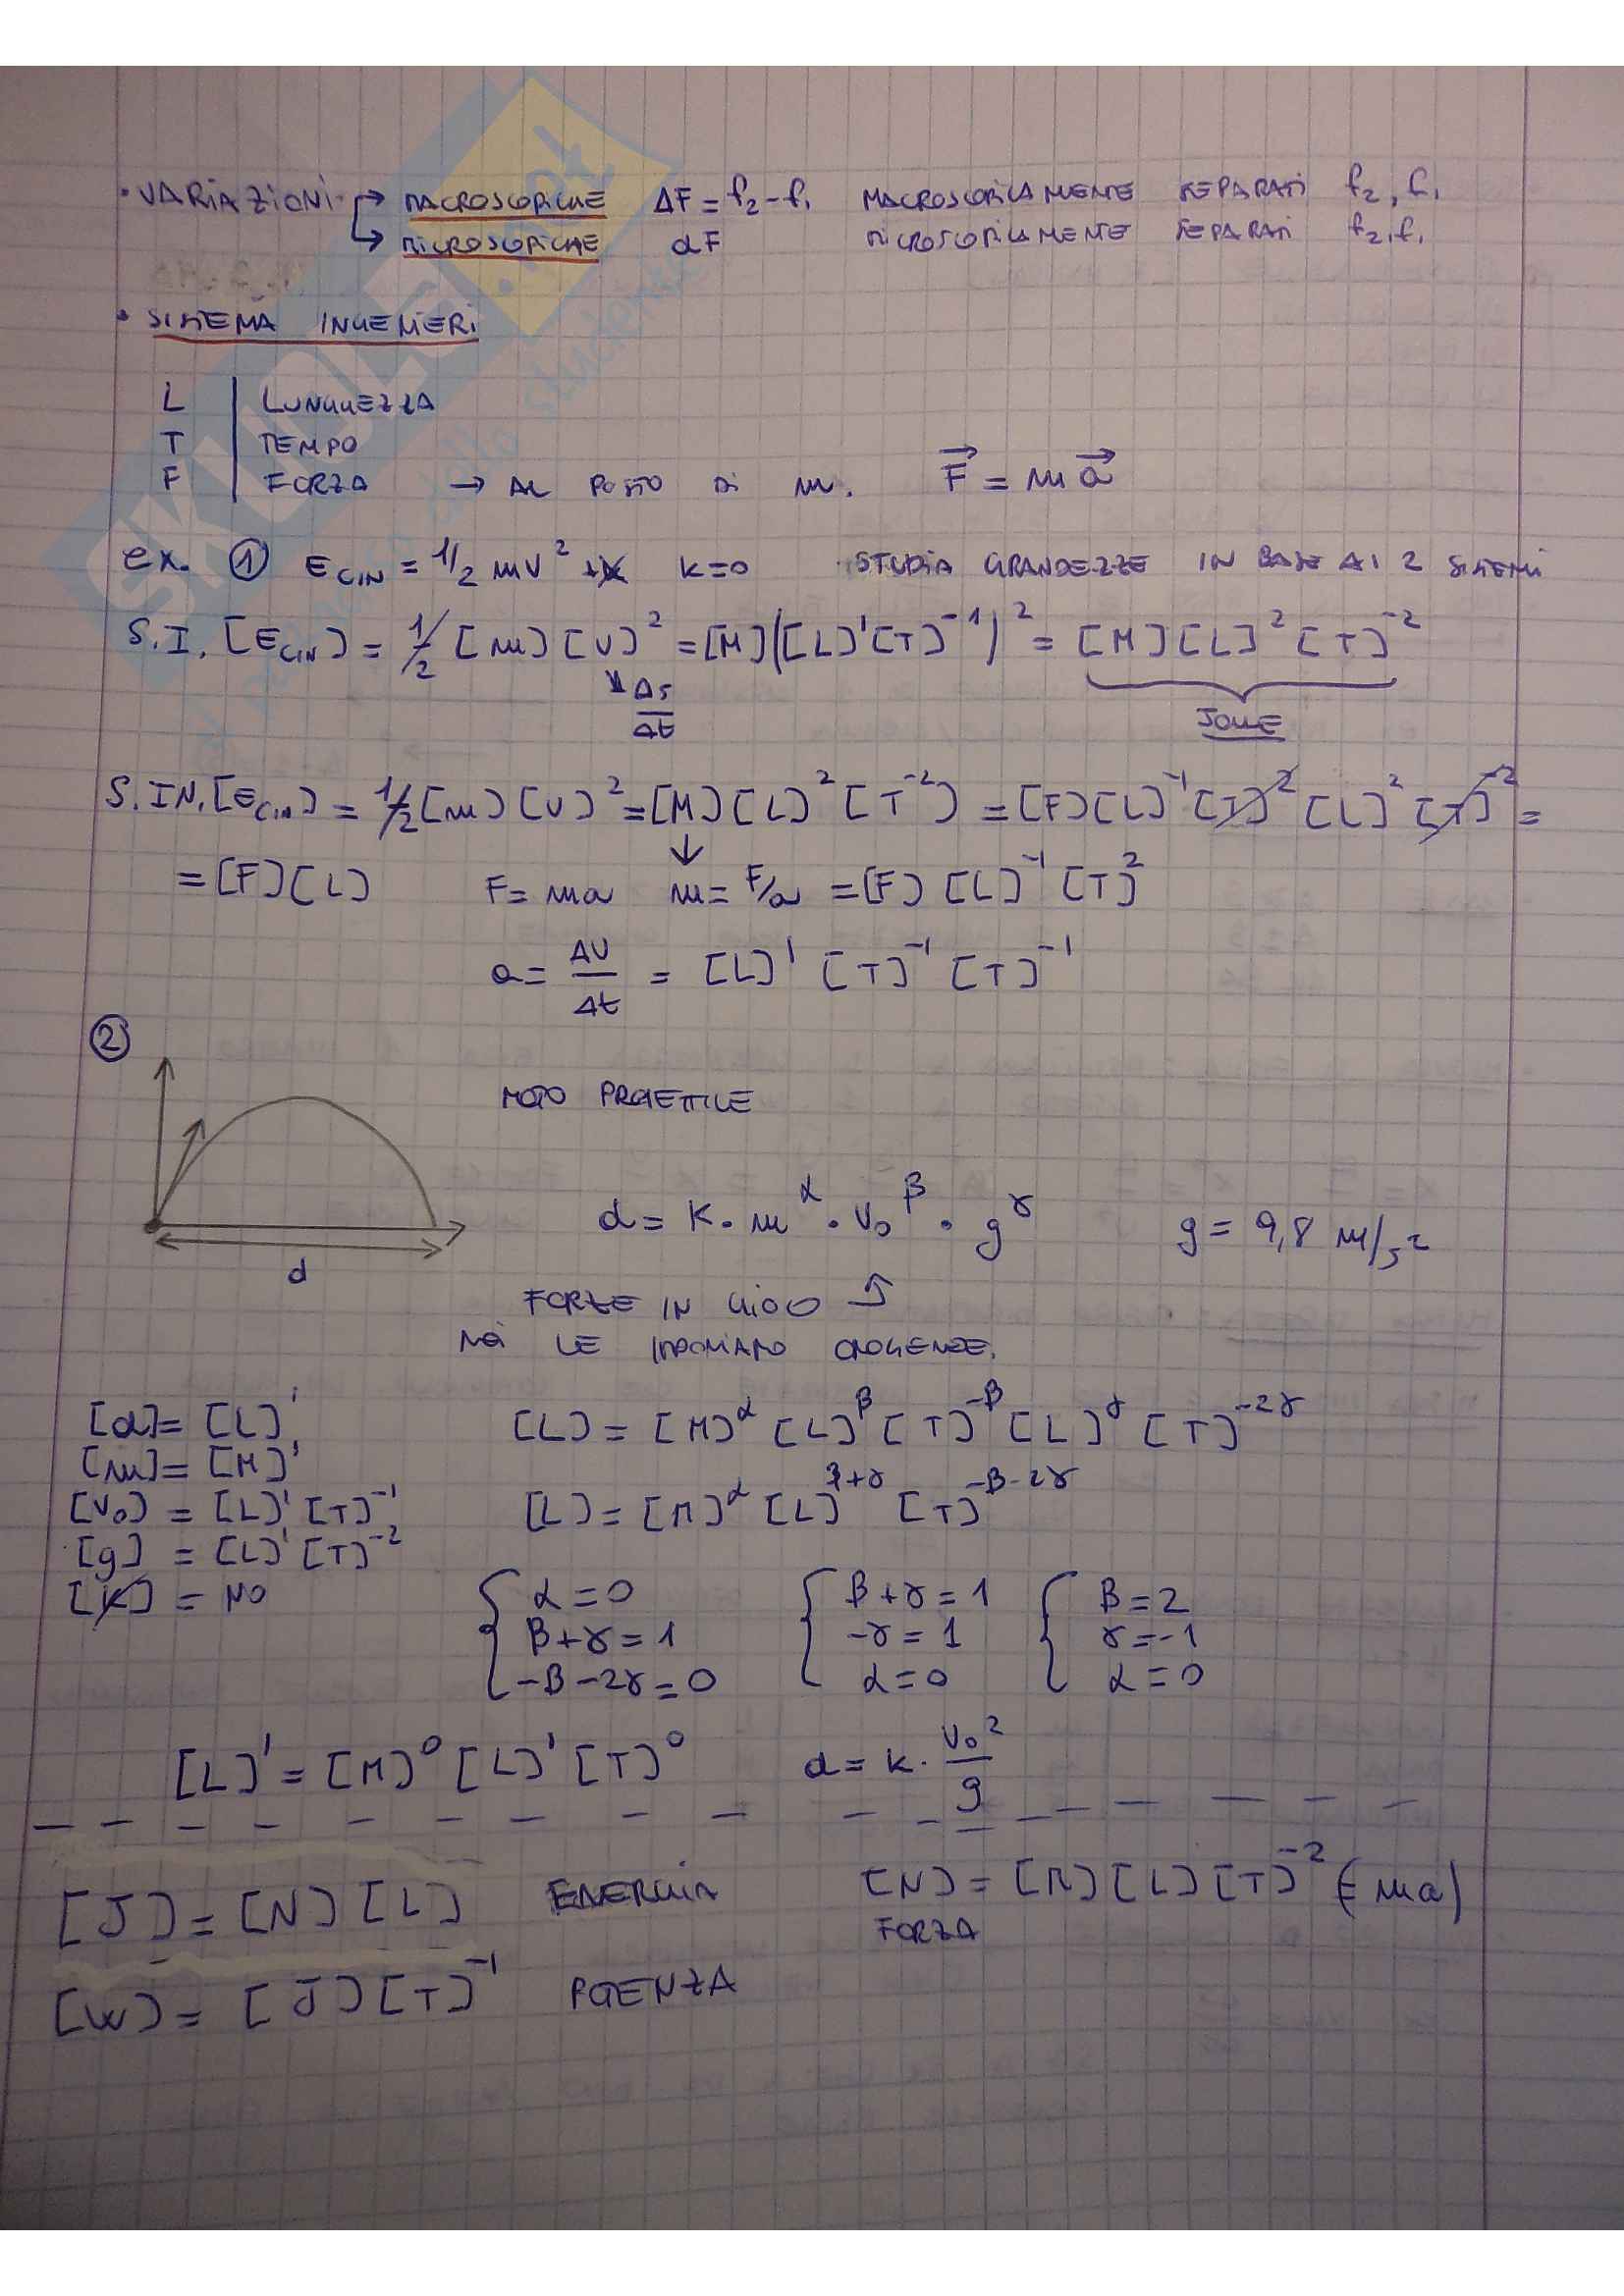 • VARIAZIONI → MACROSCOPICHE ΔF = f₂ - f₁ MACROSCOPICAMENTE SEPARATI f₂, f₁
→ MICROSCOPICHE dF MICROSCOPICAMENTE SEPARATI f₂, f₁
• SISTEMA INGEGNERI
L | LUNGHEZZA
T | TEMPO
F | FORZA → AL POSTO DI m. F⃗ = m a⃗
ex. ① E_CIN = 1/2 mV² + K K=0 STUDIA GRANDEZZE IN BASE AI 2 SISTEMI
S.I. [E_CIN] = 1/2 [m] [V]² = [M]([L]¹[T]⁻¹)² = [M][L]²[T]⁻²
Δs/Δt
JOULE
S.IN. [E_CIN] = 1/2 [m] [V]² = [M] [L]² [T⁻²] = [F] [L]⁻¹ [T]² [L]² [T]⁻² =
= [F] [L] F = ma m = F/a = [F] [L]⁻¹ [T]²
a = ΔV/Δt = [L]¹ [T]⁻¹ [T]⁻¹
②
MOTO PROIETTILE
d = K · m^α · V₀^β · g^γ g = 9,8 m/s²
d
FORZE IN GIOCO ↑
NOI LE OMOGENEE.
[d] = [L]¹ [L] = [M]^α [L]^β [T]^-β [L]^γ [T]^-2γ
[m] = [M]¹
[V₀] = [L]¹ [T]⁻¹ [L] = [M]^α [L]^β+γ [T]^-β-2γ
[g] = [L]¹ [T]⁻²
[K] = NO { α = 0 { β + γ = 1 { β = 2
β + γ = 1 -γ = 1 γ = -1
-β - 2γ = 0 α = 0 α = 0
[L]¹ = [M]⁰ [L]¹ [T]⁰ d = K · V₀²/g
[J] = [N] [L] ENERGIA [N] = [M] [L] [T]⁻² (= ma)
FORZA
[W] = [J] [T]⁻¹ POTENZA
SKUOLA.net